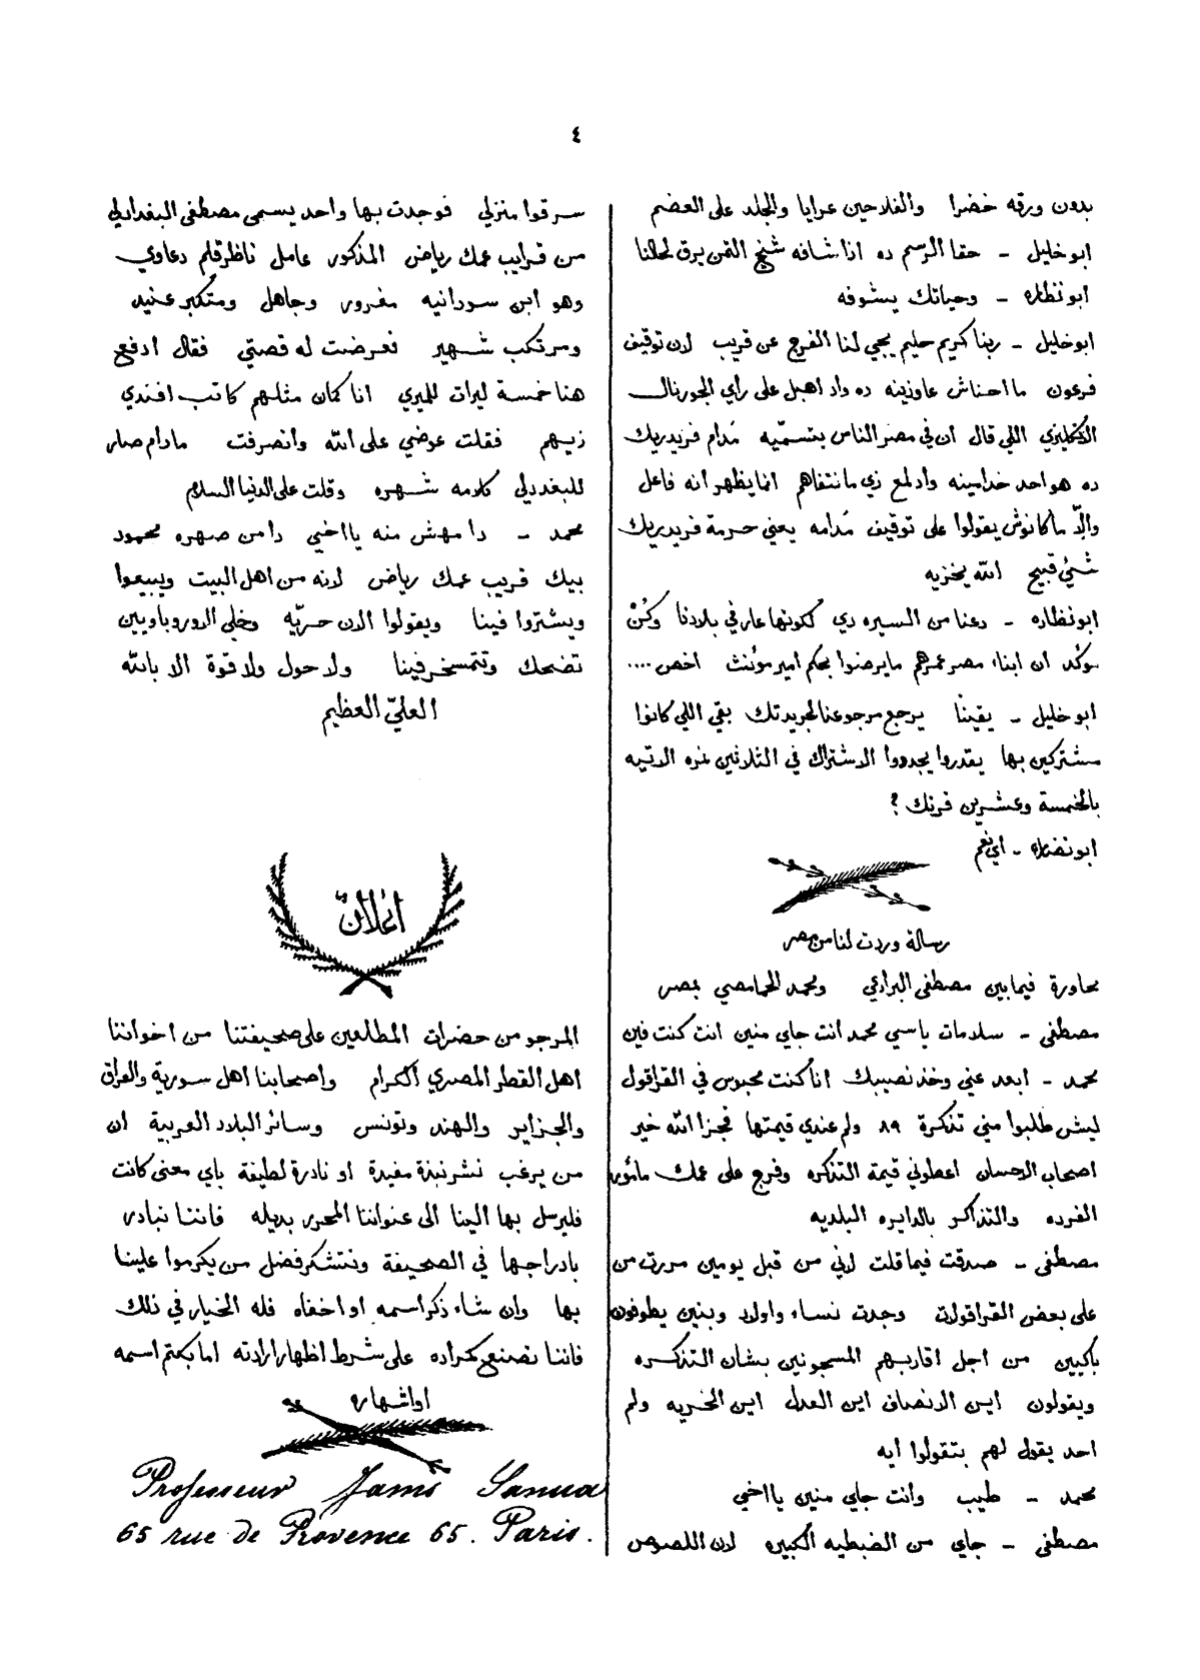 ٤
بدون ورقه خضرا والفلاحين عرايا والجلد على العضم
ابو خليل - حقا الرسم ده اذا شافه شيخ التمن يرق لحالنا
ابو نظاره - وحياتك يشوفه
ابو خليل - ربنا كريم حليم يجي لنا الفرج عن قريب لان توقيف
فرعون ما احناش عاوزينه ده واد اهبل على راي الجورنال
الانكليزي اللي قال ان في مصر الناس بتسمّيه مَدام فريديريك
ده هو احد خدامينه واد لمع زي مانتفاهم انما يظهر انه فاعل
والّا ماكانوش يقولوا على توقيف مَدامه يعني حرمة فريديريك
شئ قبيح الله يخزيه
ابو نظاره - دعنا من السيره دي لكونها عار في بلادنا وكُنْ
مؤكد ان ابناء مصر عمرهم مايرضوا بحكم امير مؤنث اخص ....
ابو خليل - يقينًا يرجع مرجوعنا لجريدتك بقي اللي كانوا
مشتركين بها يقدروا يجددوا الاشتراك في الثلاثين نمره الاتيه
بالخمسة وعشرين فرنك ؟
ابو نضاره - اي نعم
رسالة وردت لنا من مصر
محاورة فيما بين مصطفى البرادعي ومحمد الحمامصي بمصر
مصطفى - سلامات ياسي محمد انت جاي منين انت كنت فين
محمد - ابعد عني وخذ نصيبك انا كنت محبوس في القراقول
ليش طلبوا مني تذكرة ٨٩ ولم عندي قيمتها فجزا الله خير
اصحاب الاحسان اعطوني قيمة التذكره وفرج على عمك مأمور
الفرده والتذاكر بالدايره البلديه
مصطفى - صدقت فيما قلت لاني من قبل يومين مررت من
على بعض القراقولات وجدت نساء واولاد وبنين يطوفون
باكيين من اجل اقاربهم المسجونين بشان التذكره
ويقولون اين الانصاف اين العدل اين الحريه ولم
احد يقول لهم بتقولوا ايه
محمد - طيب وانت جاي منين يا اخي
مصطفى - جاي من الضبطيه الكبيره لان اللصوص
سرقوا منزلي فوجدت بها واحد يسمى مصطفى البغدادلي
من قرايب عمك رياض المذكور عامل ناظر قلم دعاوي
وهو ابن سودانيه مغرور وجاهل ومتكبر عنيد
ومرتكب شهير فعرضت له قصتي فقال ادفع
هنا خمسة ليرات للميري انا كمان مثلهم كاتب افندي
زيهم فقلت عوضي على الله وانصرفت مادام صار
للبغددلي كلامه شهره وقلت على الدنيا السلام
محمد - دا مهش منه يا اخي دا من صهره محمود
بيك قريب عمك رياض لانه من اهل البيت ويبيعوا
ويشتروا فينا ويقولوا الان حريّه وخلي الاوروباويين
تضحك وتتمسخر فينا ولا حول ولا قوة الا بالله
العليّ العظيم
اعلانٌ
المرجو من حضرات المطلعين على صحيفتنا من اخواننا
اهل القطر المصري الكرام واصحابنا اهل سورية والعراق
والجزاير والهند وتونس وسائر البلاد العربية ان
من يرغب نشر نبذة مفيدة او نادرة لطيفة باي معنى كانت
فليرسل بها الينا الى عنواننا المحرر بذيله فاننا نبادر
بادراجها في الصحيفة ونتشكر فضل من يكرموا علينا
بها وان شاء ذكر اسمه او اخفاه فله الخيار في ذلك
فاننا نصنع كمراده على شرط اظهار ارادته اما بكتم اسمه
او اشهاره
Professeur James Sanua
65 rue de Provence 65. Paris.